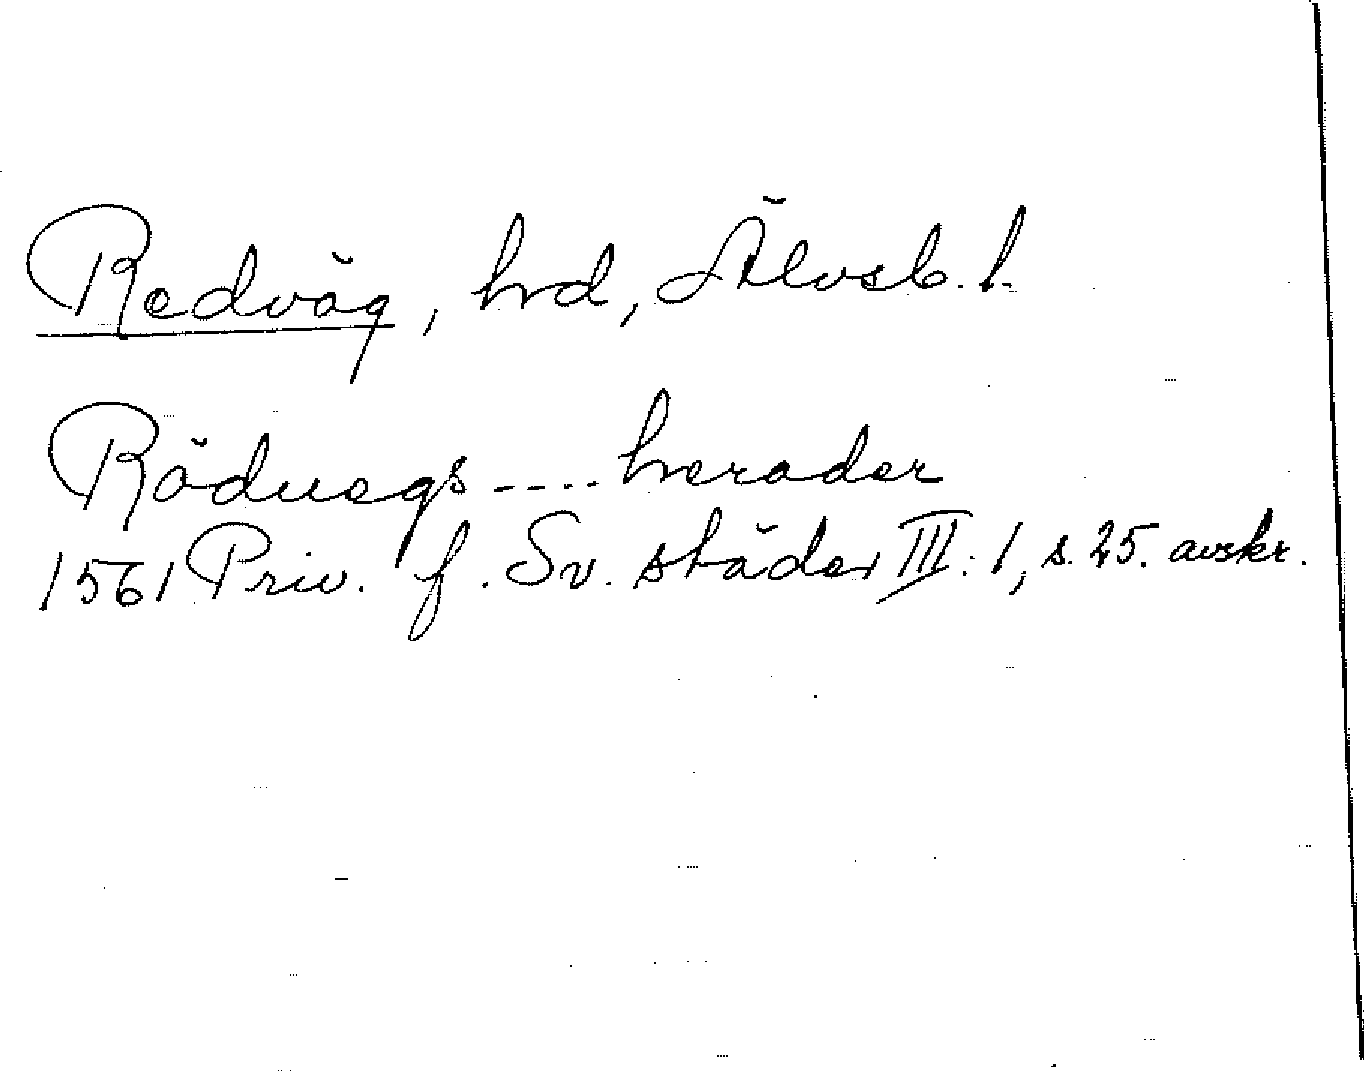 Redväg, hrd, Älvsb. l.
Röduegs .... herader
1561 Priv. f. Sv. städer III: 1, s. 25. avskr.